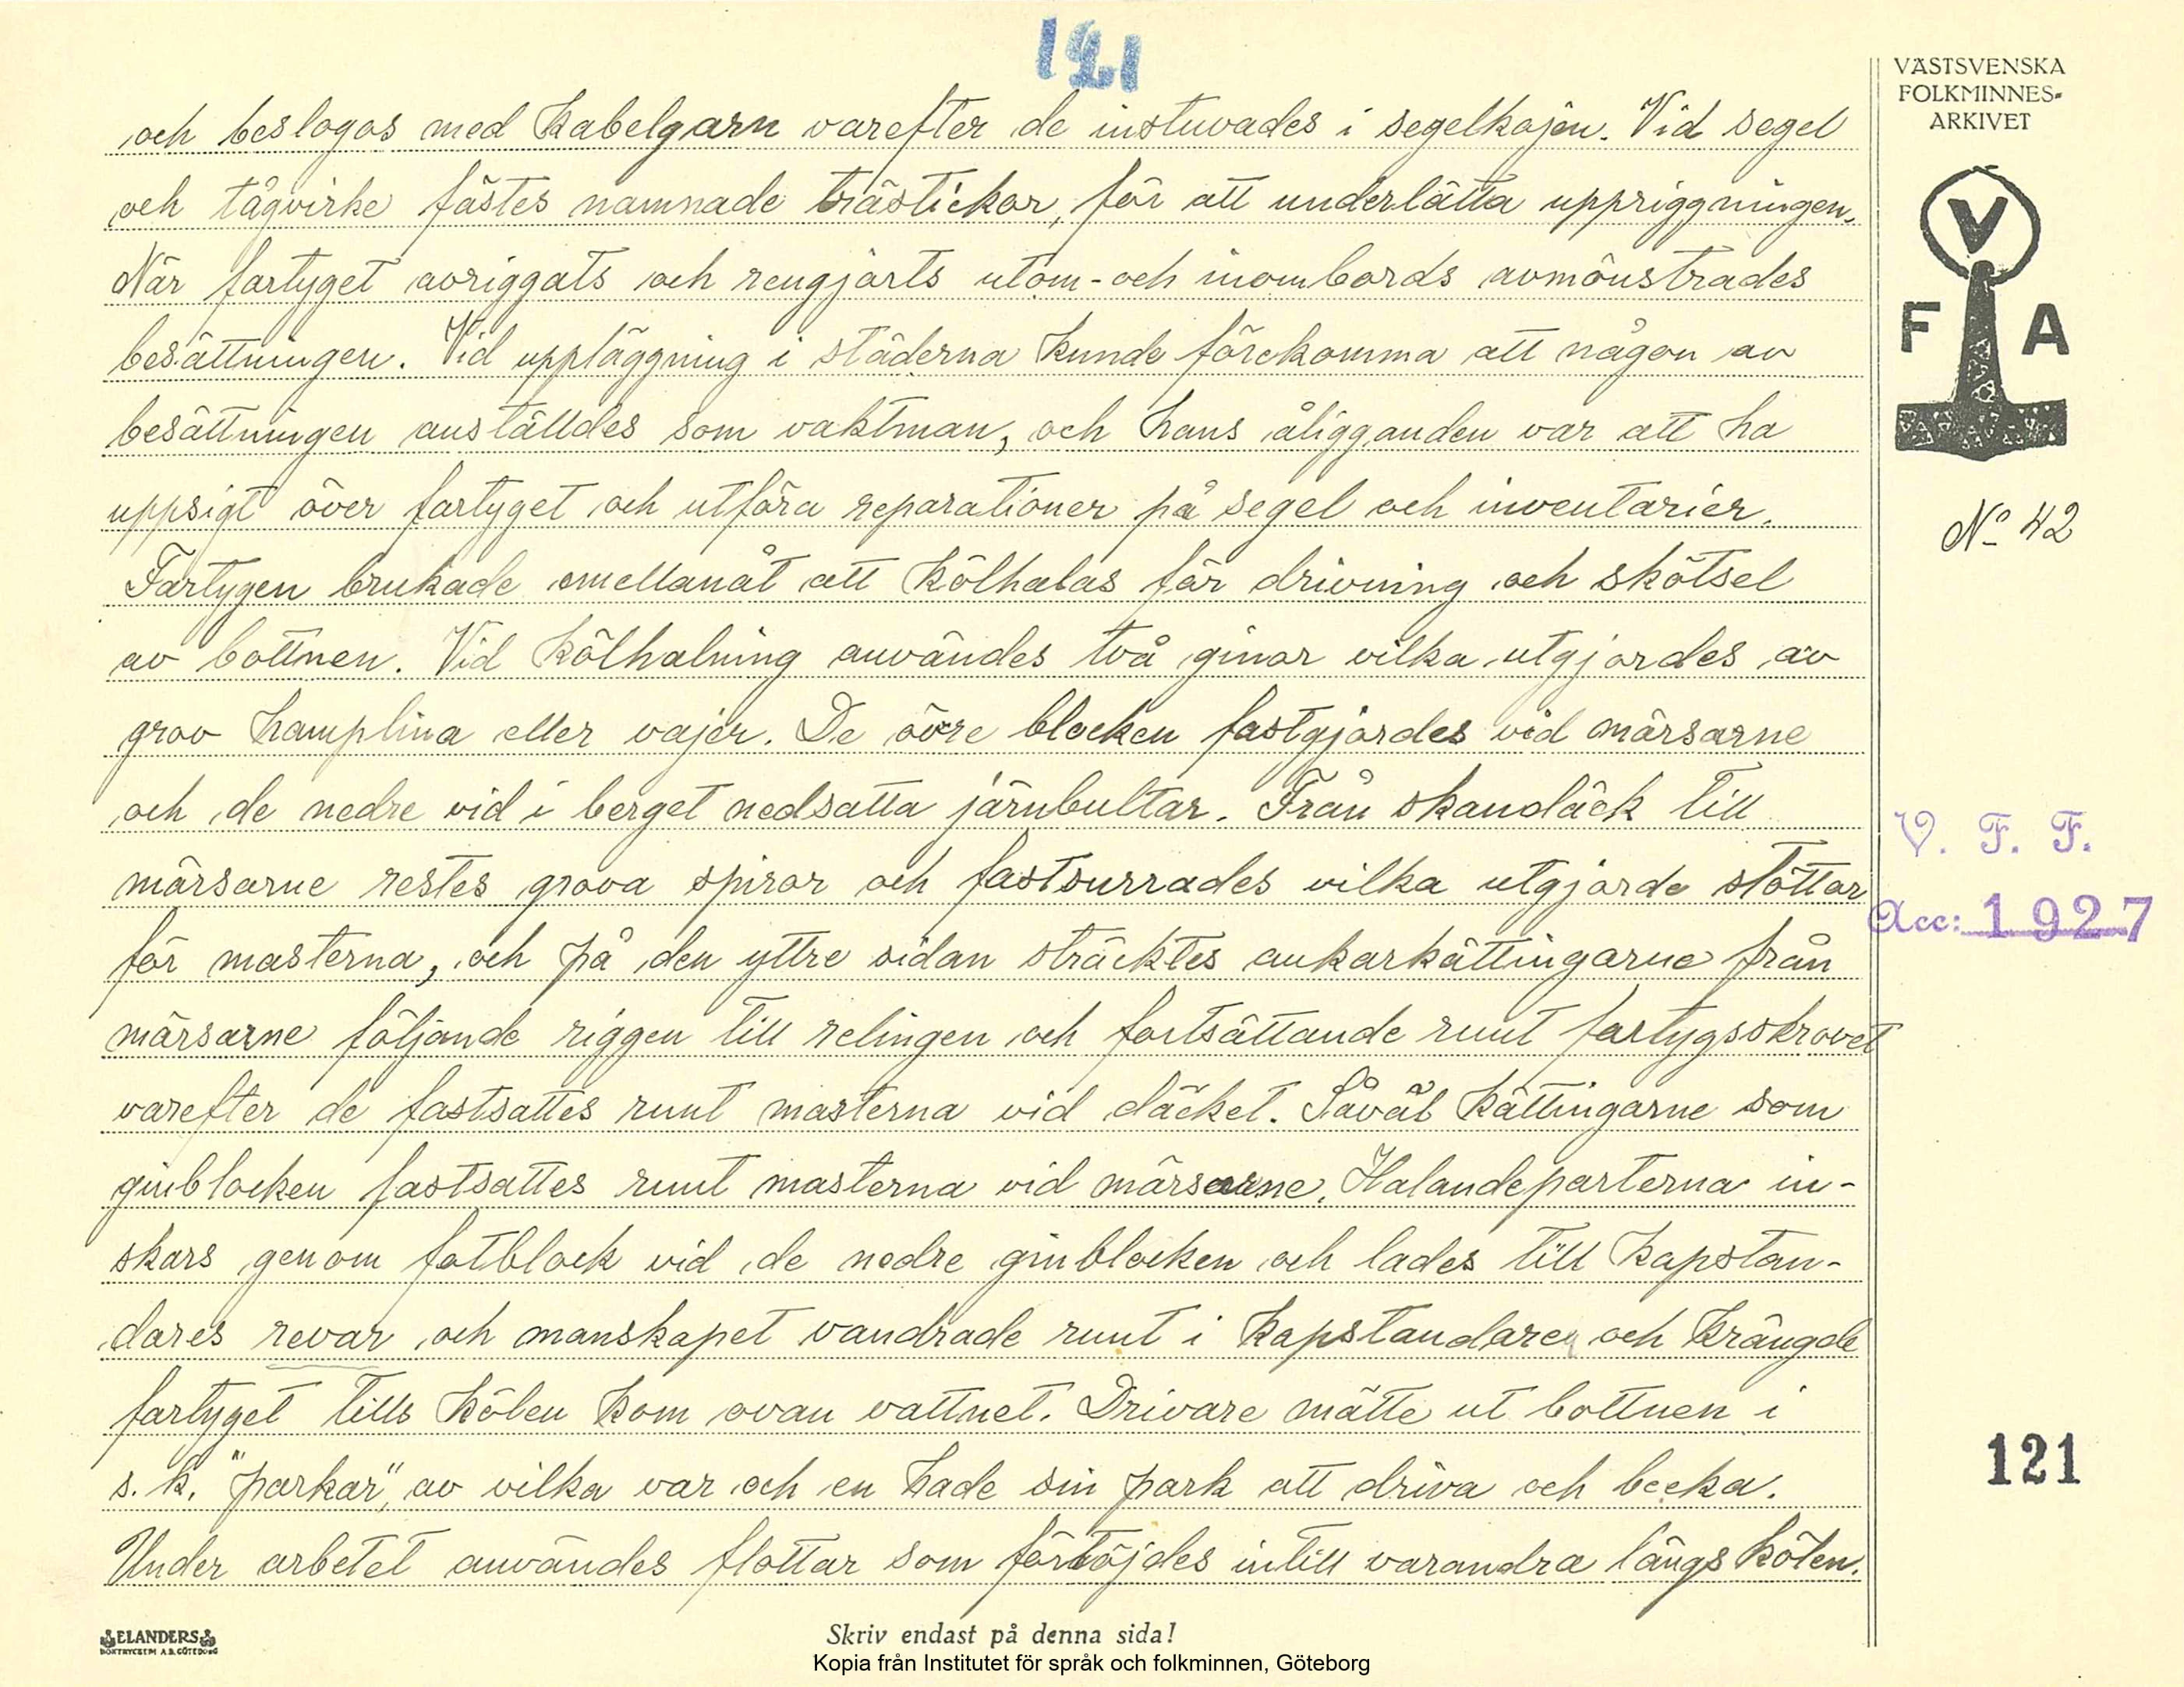 121
och beslogos med kabelgarn varefter de instuvades i segelkojen. Vid segel
och tågvirke fästes namnade trästickor, för att underlätta uppriggningen.
När fartyget avriggats och rengjorts utom-och inombords avmönstrades
besättningen. Vid uppläggning i städerna kunde förekomma att någon av
besättningen anställdes som vaktman, och hans åligganden var att ha
uppsigt över fartyget och utföra reparationer på segel och inventarier.
Fartygen brukade emellanåt att kölhalas för drivning och skötsel
av bottnen. Vid kölhalning användes två ginor vilka utgjordes av
grov hamplina eller vajer. De övre blocken fastgjordes vid märsarne
och de nedre vid i berget nedsatta järnbultar. Från skandäck till
märsarne restes grova spiror och fastsurrades vilka utgjorde stöttor
för masterna, och på den yttre sidan sträcktes ankarkättingarne från
märsarne följande riggen till relingen och fortsättande runt fartygsskrovet
varefter de fastsattes runt masterna vid däcket. Såväl kättingarne som
ginblocken fastsattes runt masterna vid märsarne. Halandeparterna in-
skars genom fotblock vid de nedre ginblocken och lades till kapstan-
dares revar och manskapet vandrade runt i kapstandare och krängde
fartyget tills kölen kom ovan vattnet. Drivare mätte ut bottnen i
s.k. "parkar", av vilka var och en hade sin park att driva och becka.
Under arbetet användes flottar som förtöjdes intill varandra längs kölen.
VÄSTSVENSKA
FOLKMINNES-
ARKIVET
V
F A
No 42
V. F. F.
Acc: 1927
121
ELANDERS
BOKTRYCKERI A.B. GÖTEBORG
Skriv endast på denna sida!
Kopia från Institutet för språk och folkminnen, Göteborg